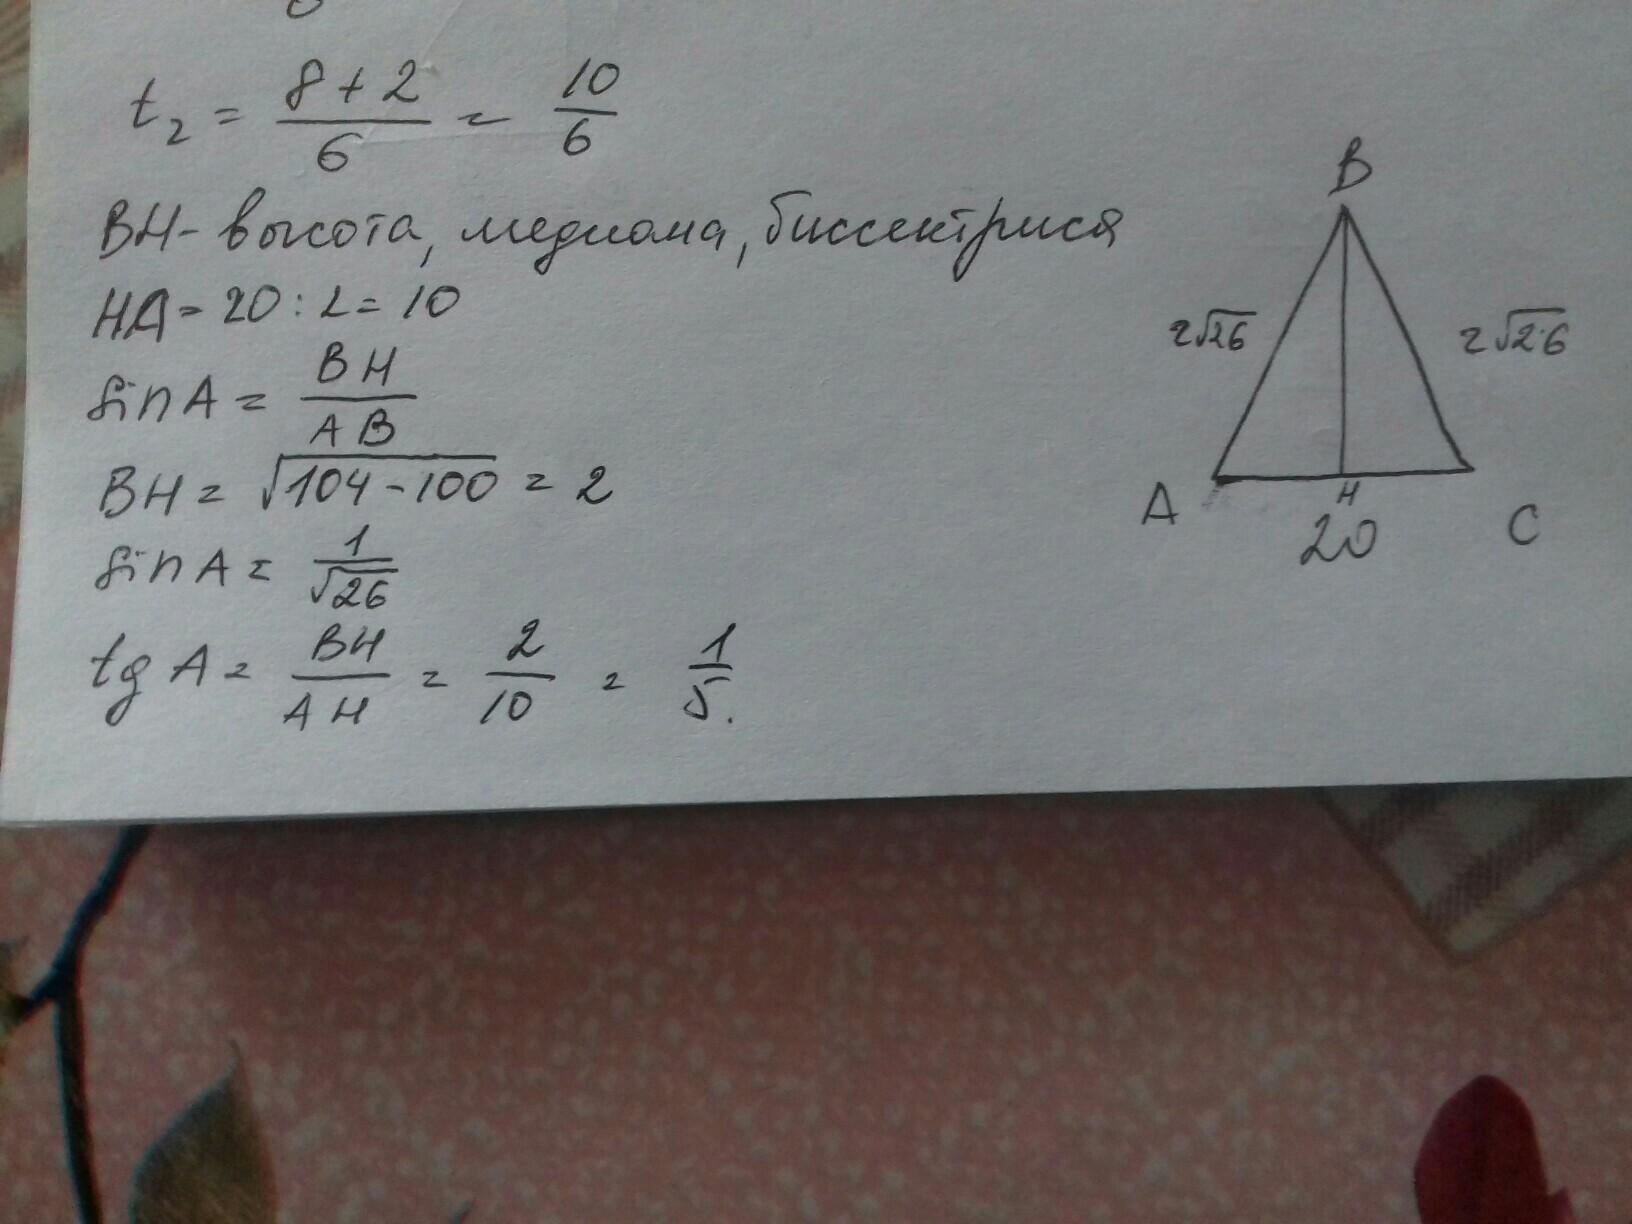 t₂ = (8+2)/6 = 10/6
BH - высота, медиана, биссектриса
HA = 20 : 2 = 10
sin A = BH/AB
BH = √(104-100) = 2
sin A = 1/√26
tg A = BH/AH = 2/10 = 1/5.
B
2√26
2√26
A
H
C
20